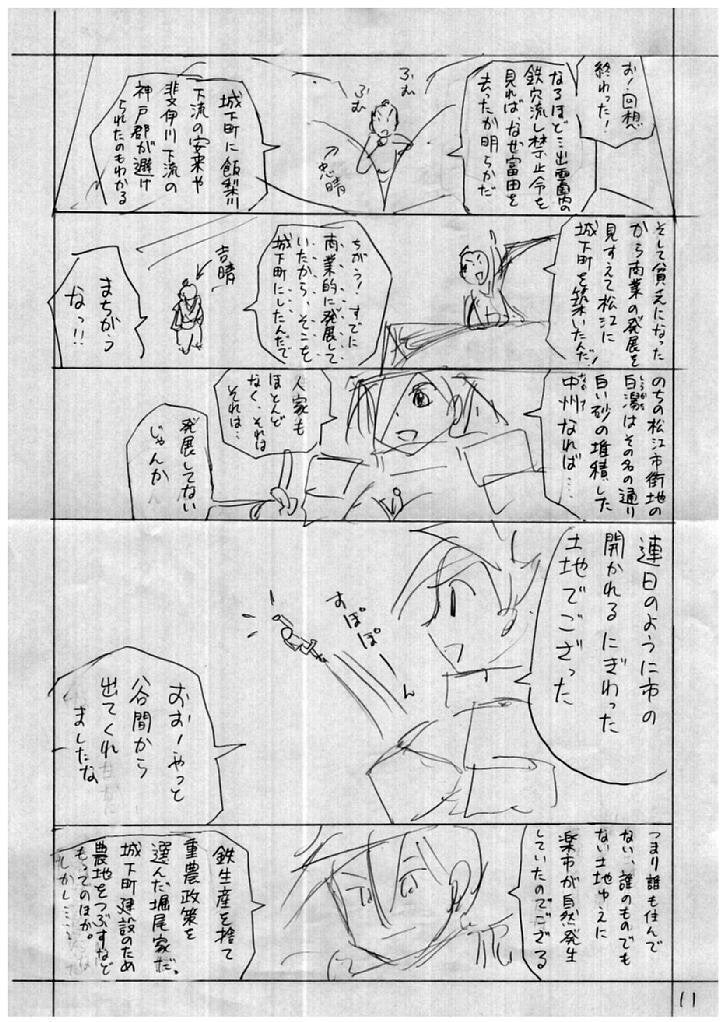 お！回想
終わった！
なるほど…出雲国内の
鉄穴流し禁止令を
見れば、なぜ富田を
去ったか明らかだ
ふむ
ふむ
忠晴
城下町に飯梨川
下流の安来や
斐伊川下流の
神戸郡が避け
られたのもわかる
そして貧乏になった
から商業の発展を
見すえて松江に
城下町を築いたんだ！
ちがう！すでに
商業的に発展して
いたから、そこを
城下町にしたんで
吉晴
まちがう
なっ!!
のちの松江市街地の
白潟はその名の通り
白い砂の堆積した
中州なれば…
人家も
ほとんど
なく、それは
それは…
発展してない
じゃんか
連日のように市の
開かれるにぎわった
土地でござった
すぽぽーん
おお！やっと
谷間から
出てくれ
ましたな
つまり誰も住んで
ない、誰のものでも
ない土地ゆえに
楽市が自然発生
していたのでござる
鉄生産を捨て
重農政策を
選んだ堀尾家だ。
城下町建設のため
農地をつぶすなど
もってのほか。
しかし…
11